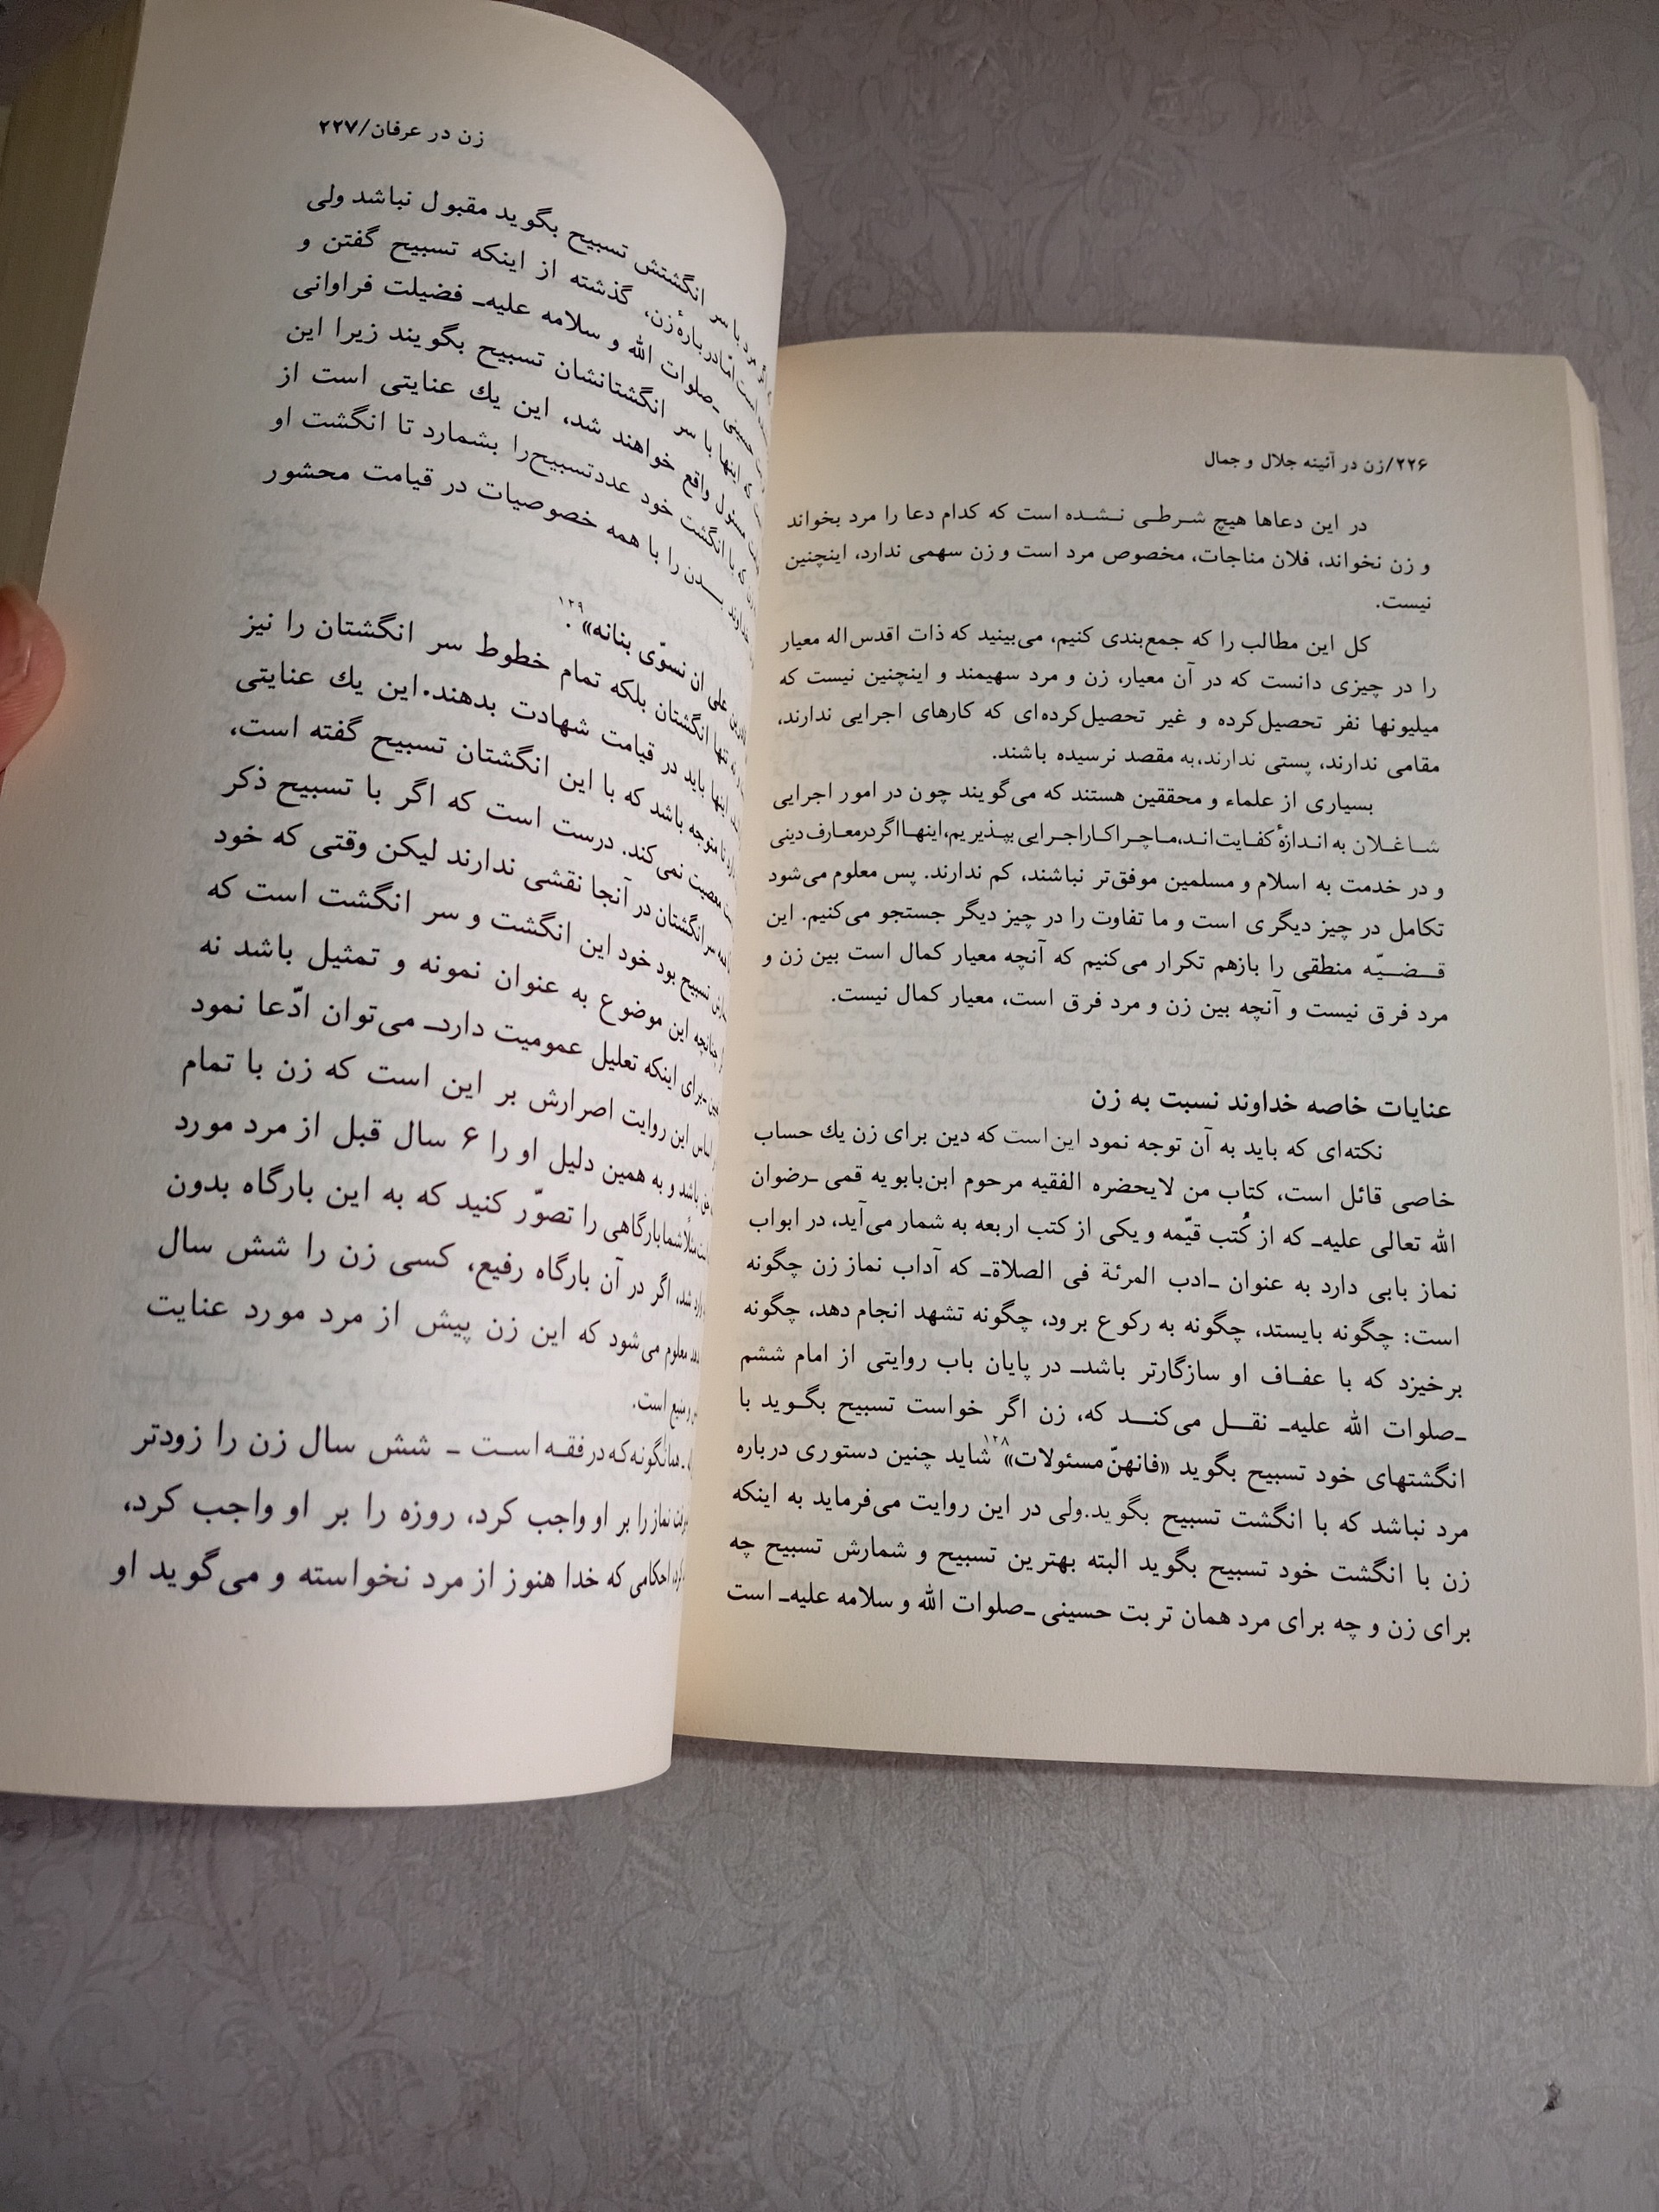 ۲۲۶/زن در آئینه جلال و جمال
در این دعاها هیچ شرطی نشده است که کدام دعا را مرد بخواند
و زن نخواند، فلان مناجات، مخصوص مرد است و زن سهمی ندارد، اینچنین
نیست.
کل این مطالب را که جمع‌بندی کنیم، می‌بینید که ذات اقدس اله معیار
را در چیزی دانست که در آن معیار، زن و مرد سهیمند و اینچنین نیست که
میلیونها نفر تحصیل‌کرده و غیر تحصیل‌کرده‌ای که کارهای اجرایی ندارند،
مقامی ندارند، پستی ندارند، به مقصد نرسیده باشند.
بسیاری از علماء و محققین هستند که می‌گویند چون در امور اجرایی
شاغلان به اندازهٔ کفایت‌اند، ما چرا کار اجرایی بپذیریم، اینها اگر در معارف دینی
و در خدمت به اسلام و مسلمین موفق‌تر نباشند، کم ندارند. پس معلوم می‌شود
تکامل در چیز دیگری است و ما تفاوت را در چیز دیگر جستجو می‌کنیم. این
قضیّه منطقی را بازهم تکرار می‌کنیم که آنچه معیار کمال است بین زن و
مرد فرق نیست و آنچه بین زن و مرد فرق است، معیار کمال نیست.
عنایات خاصه خداوند نسبت به زن
نکته‌ای که باید به آن توجه نمود این است که دین برای زن یك حساب
خاصی قائل است، کتاب من لایحضره الفقیه مرحوم ابن‌بابویه قمی ـ‌رضوان
الله تعالی علیه‌ـ که از کُتب قیّمه و یکی از کتب اربعه به شمار می‌آید، در ابواب
نماز بابی دارد به عنوان ـ‌ادب المرئة فی الصلاة‌ـ که آداب نماز زن چگونه
است: چگونه بایستد، چگونه به رکوع برود، چگونه تشهد انجام دهد، چگونه
برخیزد که با عفاف او سازگارتر باشدـ در پایان باب روایتی از امام ششم
ـ‌صلوات الله علیه‌ـ نقل می‌کند که، زن اگر خواست تسبیح بگوید با
انگشتهای خود تسبیح بگوید «فانهنّ مسئولات»۱۲۸ شاید چنین دستوری درباره
مرد نباشد که با انگشت تسبیح بگوید. ولی در این روایت می‌فرماید به اینکه
زن با انگشت خود تسبیح بگوید البته بهترین تسبیح و شمارش تسبیح چه
برای زن و چه برای مرد همان تربت حسینی ـ‌صلوات الله و سلامه علیه‌ـ است
زن در عرفان/۲۲۷
مرد با سر انگشتش تسبیح بگوید مقبول نباشد ولی
است امّا دربارهٔ زن، گذشته از اینکه تسبیح گفتن و
حسینی ـ‌صلوات الله و سلامه علیه‌ـ فضیلت فراوانی
اینها با سر انگشتانشان تسبیح بگویند زیرا این
مسئول واقع خواهند شد، این یك عنایتی است از
با انگشت خود عدد تسبیح را بشمارد تا انگشت او
بدن را با همه خصوصیات در قیامت محشور
علی ان نسوّی بنانه»۱۲۹.
تنها انگشتان بلکه تمام خطوط سر انگشتان را نیز
اینها باید در قیامت شهادت بدهند. این یك عنایتی
تا متوجه باشد که با این انگشتان تسبیح گفته است،
معصیت نمی‌کند. درست است که اگر با تسبیح ذکر
سر انگشتان در آنجا نقشی ندارند لیکن وقتی که خود
تسبیح بود خود این انگشت و سر انگشت است که
چنانچه این موضوع به عنوان نمونه و تمثیل باشد نه
ـ‌برای اینکه تعلیل عمومیت دارد‌ـ می‌توان ادّعا نمود
این روایت اصرارش بر این است که زن با تمام
باشد و به همین دلیل او را ۶ سال قبل از مرد مورد
مثلاً شما بارگاهی را تصوّر کنید که به این بارگاه بدون
شد، اگر در آن بارگاه رفیع، کسی زن را شش سال
معلوم می‌شود که این زن پیش از مرد مورد عنایت
است.
همانگونه که در فقه است ـ شش سال زن را زودتر
نماز را بر او واجب کرد، روزه را بر او واجب کرد،
احکامی که خدا هنوز از مرد نخواسته و می‌گوید او